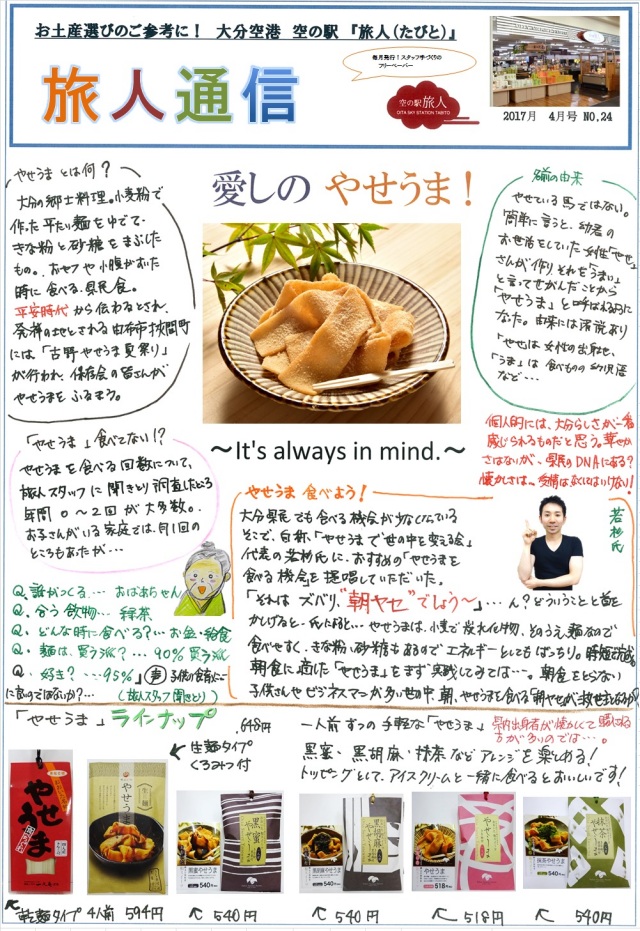 お土産選びのご参考に! 大分空港 空の駅 『旅人(たびと)』
旅人通信
毎月発行!スタッフ手づくりの
フリーペーパー
空の駅 旅人
OITA SKY STATION TABITO
2017月 4月号 NO,24
やせうま とは何?
大分の郷土料理。小麦粉で
作った平たい麺をゆでて、
きな粉と砂糖をまぶした
もの。おやつや小腹がすいた
時に食べる、県民食。
平安時代から伝わるとされ、
発祥の地とされる由布市挾間町
には「古野やせうま夏祭り」
が行われ、保存会の皆さんが
やせうまをふるまう。
愛しの やせうま!
~It's always in mind.~
名前の由来
やせている馬ではない。
簡単に言うと、幼君の
お世話をしていた女性「やせ」
さんが作り、それを「うまい」
と言ってせがんだことから
「やせうま」と呼ばれる
なった。由来には諸説あり
「やせ」は女性の出身地、
「うま」は食べものの幼児語
など…
個人的には、大分らしさが一番
感じられるものだと思う。華やか
さはないが、県民のDNAにある?
懐かしさは、愛情はなくてはいけない!
「やせうま」食べてない!?
やせうまを食べる回数について、
旅人スタッフに聞きとり調査したところ
年間 0~2回が大多数。
お子さんがいる家庭では、月1回の
ところもあったが…
Q. 誰がつくる… おばあちゃん
Q. 合う飲物… 緑茶
Q. どんな時に食べる?… お盆・給食
Q. 麺は、買う派?… 90%買う派
Q. 好き?…95%
(旅人スタッフ聞きとり)
やせうま 食べよう!
大分県民でも食べる機会が少なくなっている
そこで、自称「やせうまで世の中を変える会」
代表の若杉氏に、おすすめの「やせうまを
食べる機会を提唱していただいた。
「それは ズバリ、"朝ヤセ"でしょう~」…ん?どういうことと首を
かしげると…氏曰く…やせうまは、小麦で炭水化物、そのうえ麺なので
食べやすく、きな粉、砂糖もあるのでエネルギーとしてもばっちり。時短で
朝食に適した「やせうま」をまず実践してみては…。朝食をとらない
子供さんやビジネスマンが多い世の中、朝、やせうまを食べる「朝ヤセ」が
若杉氏
「やせうま」ラインナップ
648円
生麺タイプ
くるみつ付
一人前ずつの手軽な「やせうま」
県内出身者が懐かしくて購入する
方が多いのでは…。
黒蜜・黒胡麻・抹茶など アレンジを楽しめる!
トッピングとして、アイスクリームと一緒に食べるとおいしいです!
やせうま
やせうま
黒蜜やせうま
540円
黒蜜
やせうま
黒胡麻やせうま
540円
黒胡麻
やせうま
やせうま
518円
やせうま
抹茶やせうま
540円
抹茶
やせうま
乾麺タイプ 4人前 594円
540円
540円
518円
540円